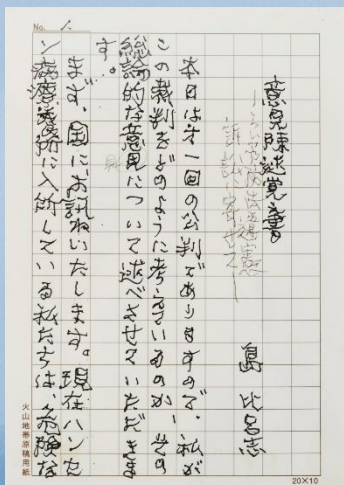 No. 1.
意見陳述覚え書
―らい予防法違憲
訴訟に寄せて―
島 比呂志
本日は第一回の公判でありますので、私が
この裁判をどのように考えているのか、その
総論的な意見について述べさせていただきま
す。
まず、国にお訊ねいたします。現在ハンセ
ン病療養所に入所している私たちは、危険な
火山地帯原稿用紙
20×10